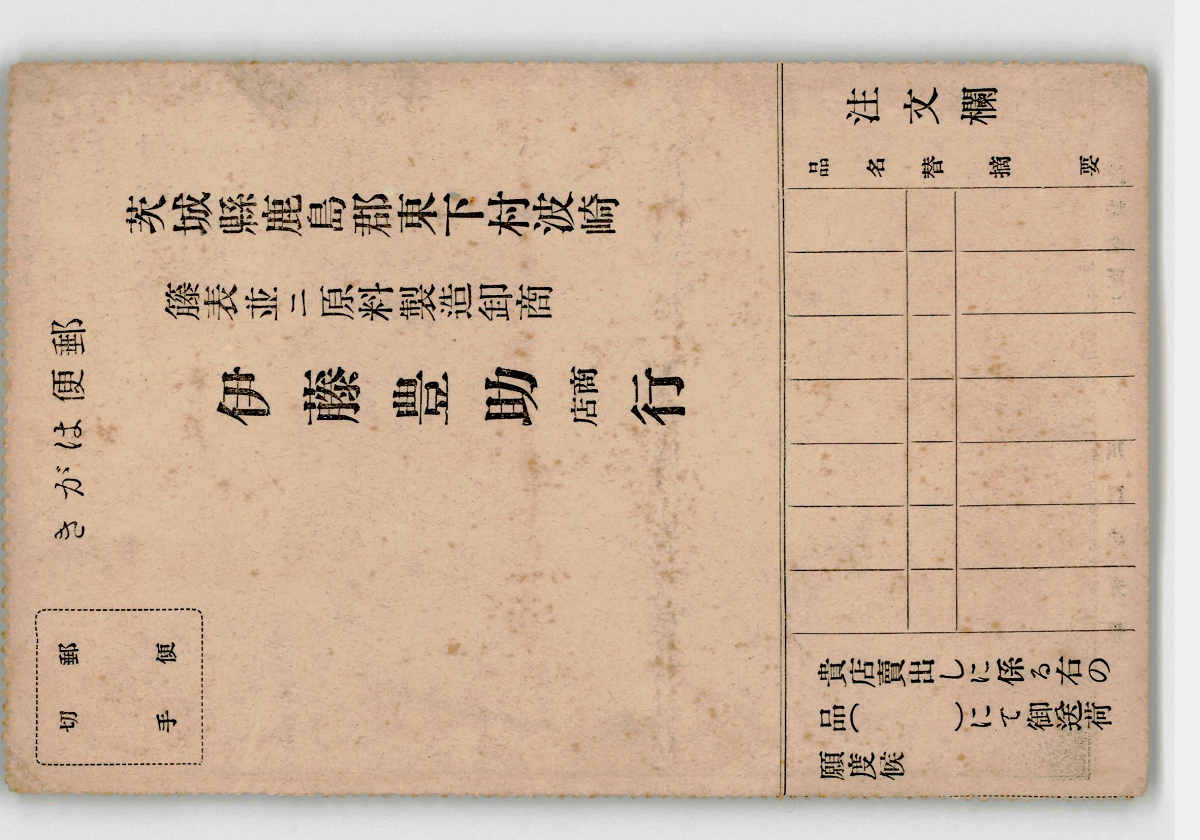 郵便はがき
郵便
切手
茨城縣鹿島郡東下村波崎
籐表並ニ原料製造卸商
伊藤豊助商店行
注文欄
品名 替 摘要
貴店賣出しに係る右の
品(　　　)にて御送荷
願度候